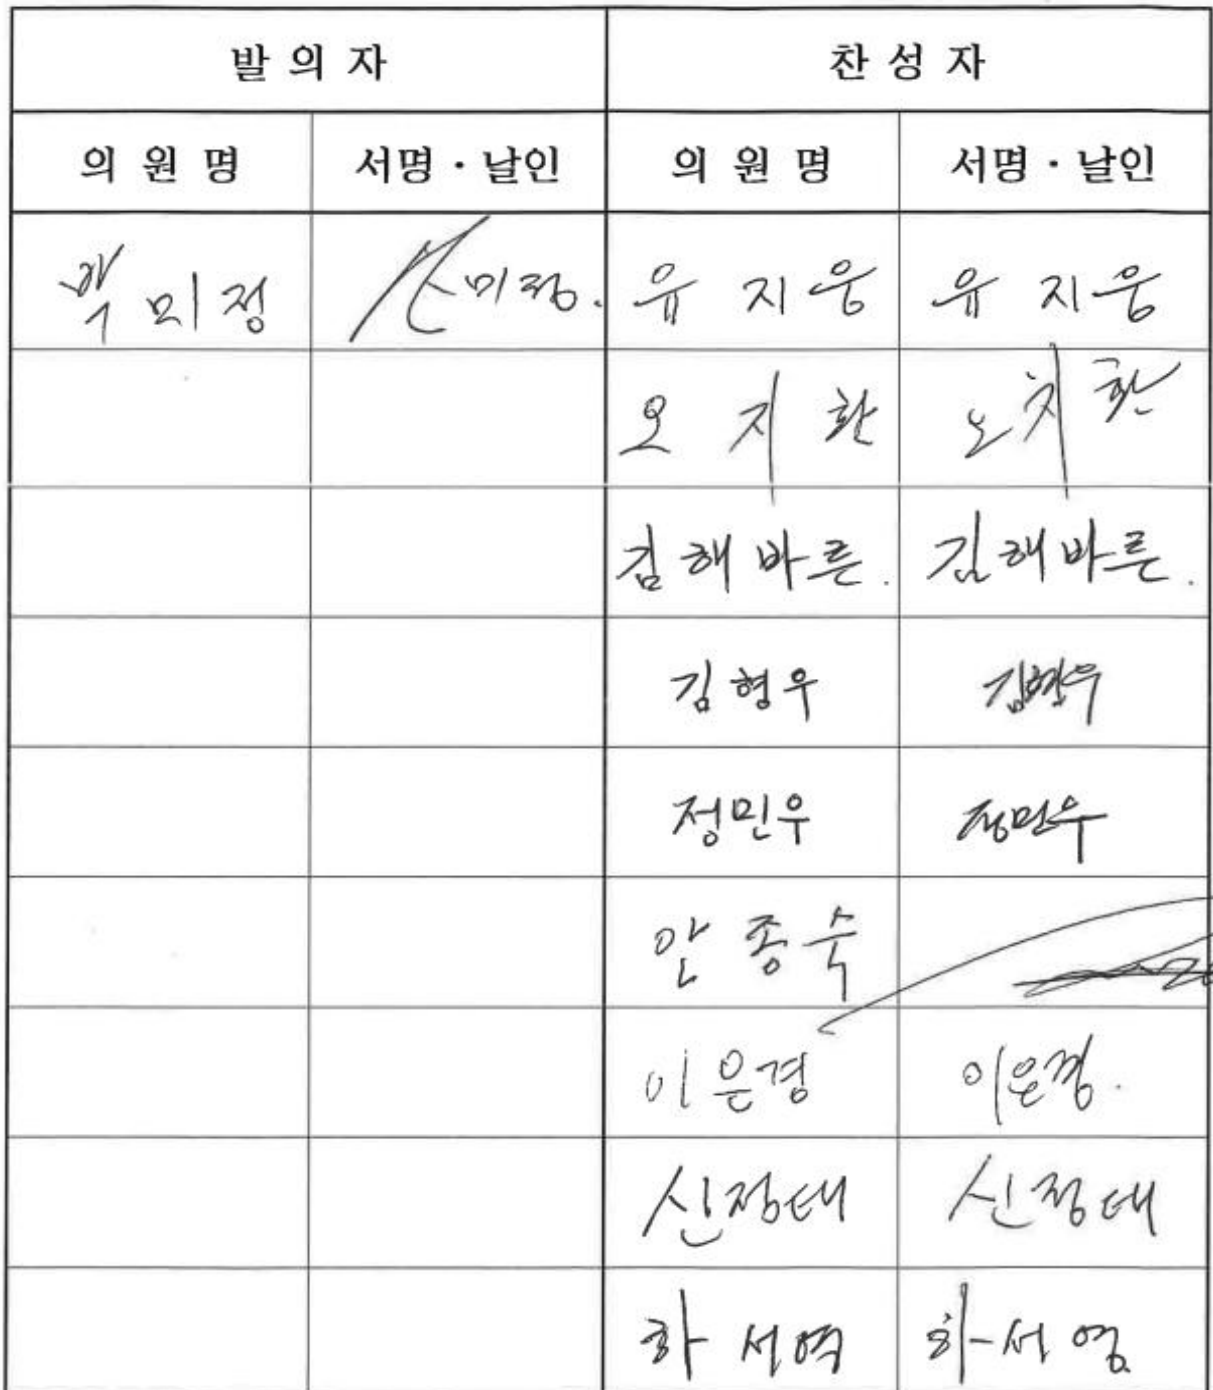 발의자 찬성자
의원명 서명·날인 의원명 서명·날인
박미정 유지웅 유지웅
오지환
김해바른. 김해바른.
김형우 김형우
정민우 정민우
안종숙
이은경 이은경.
신정태 신정태
하서영